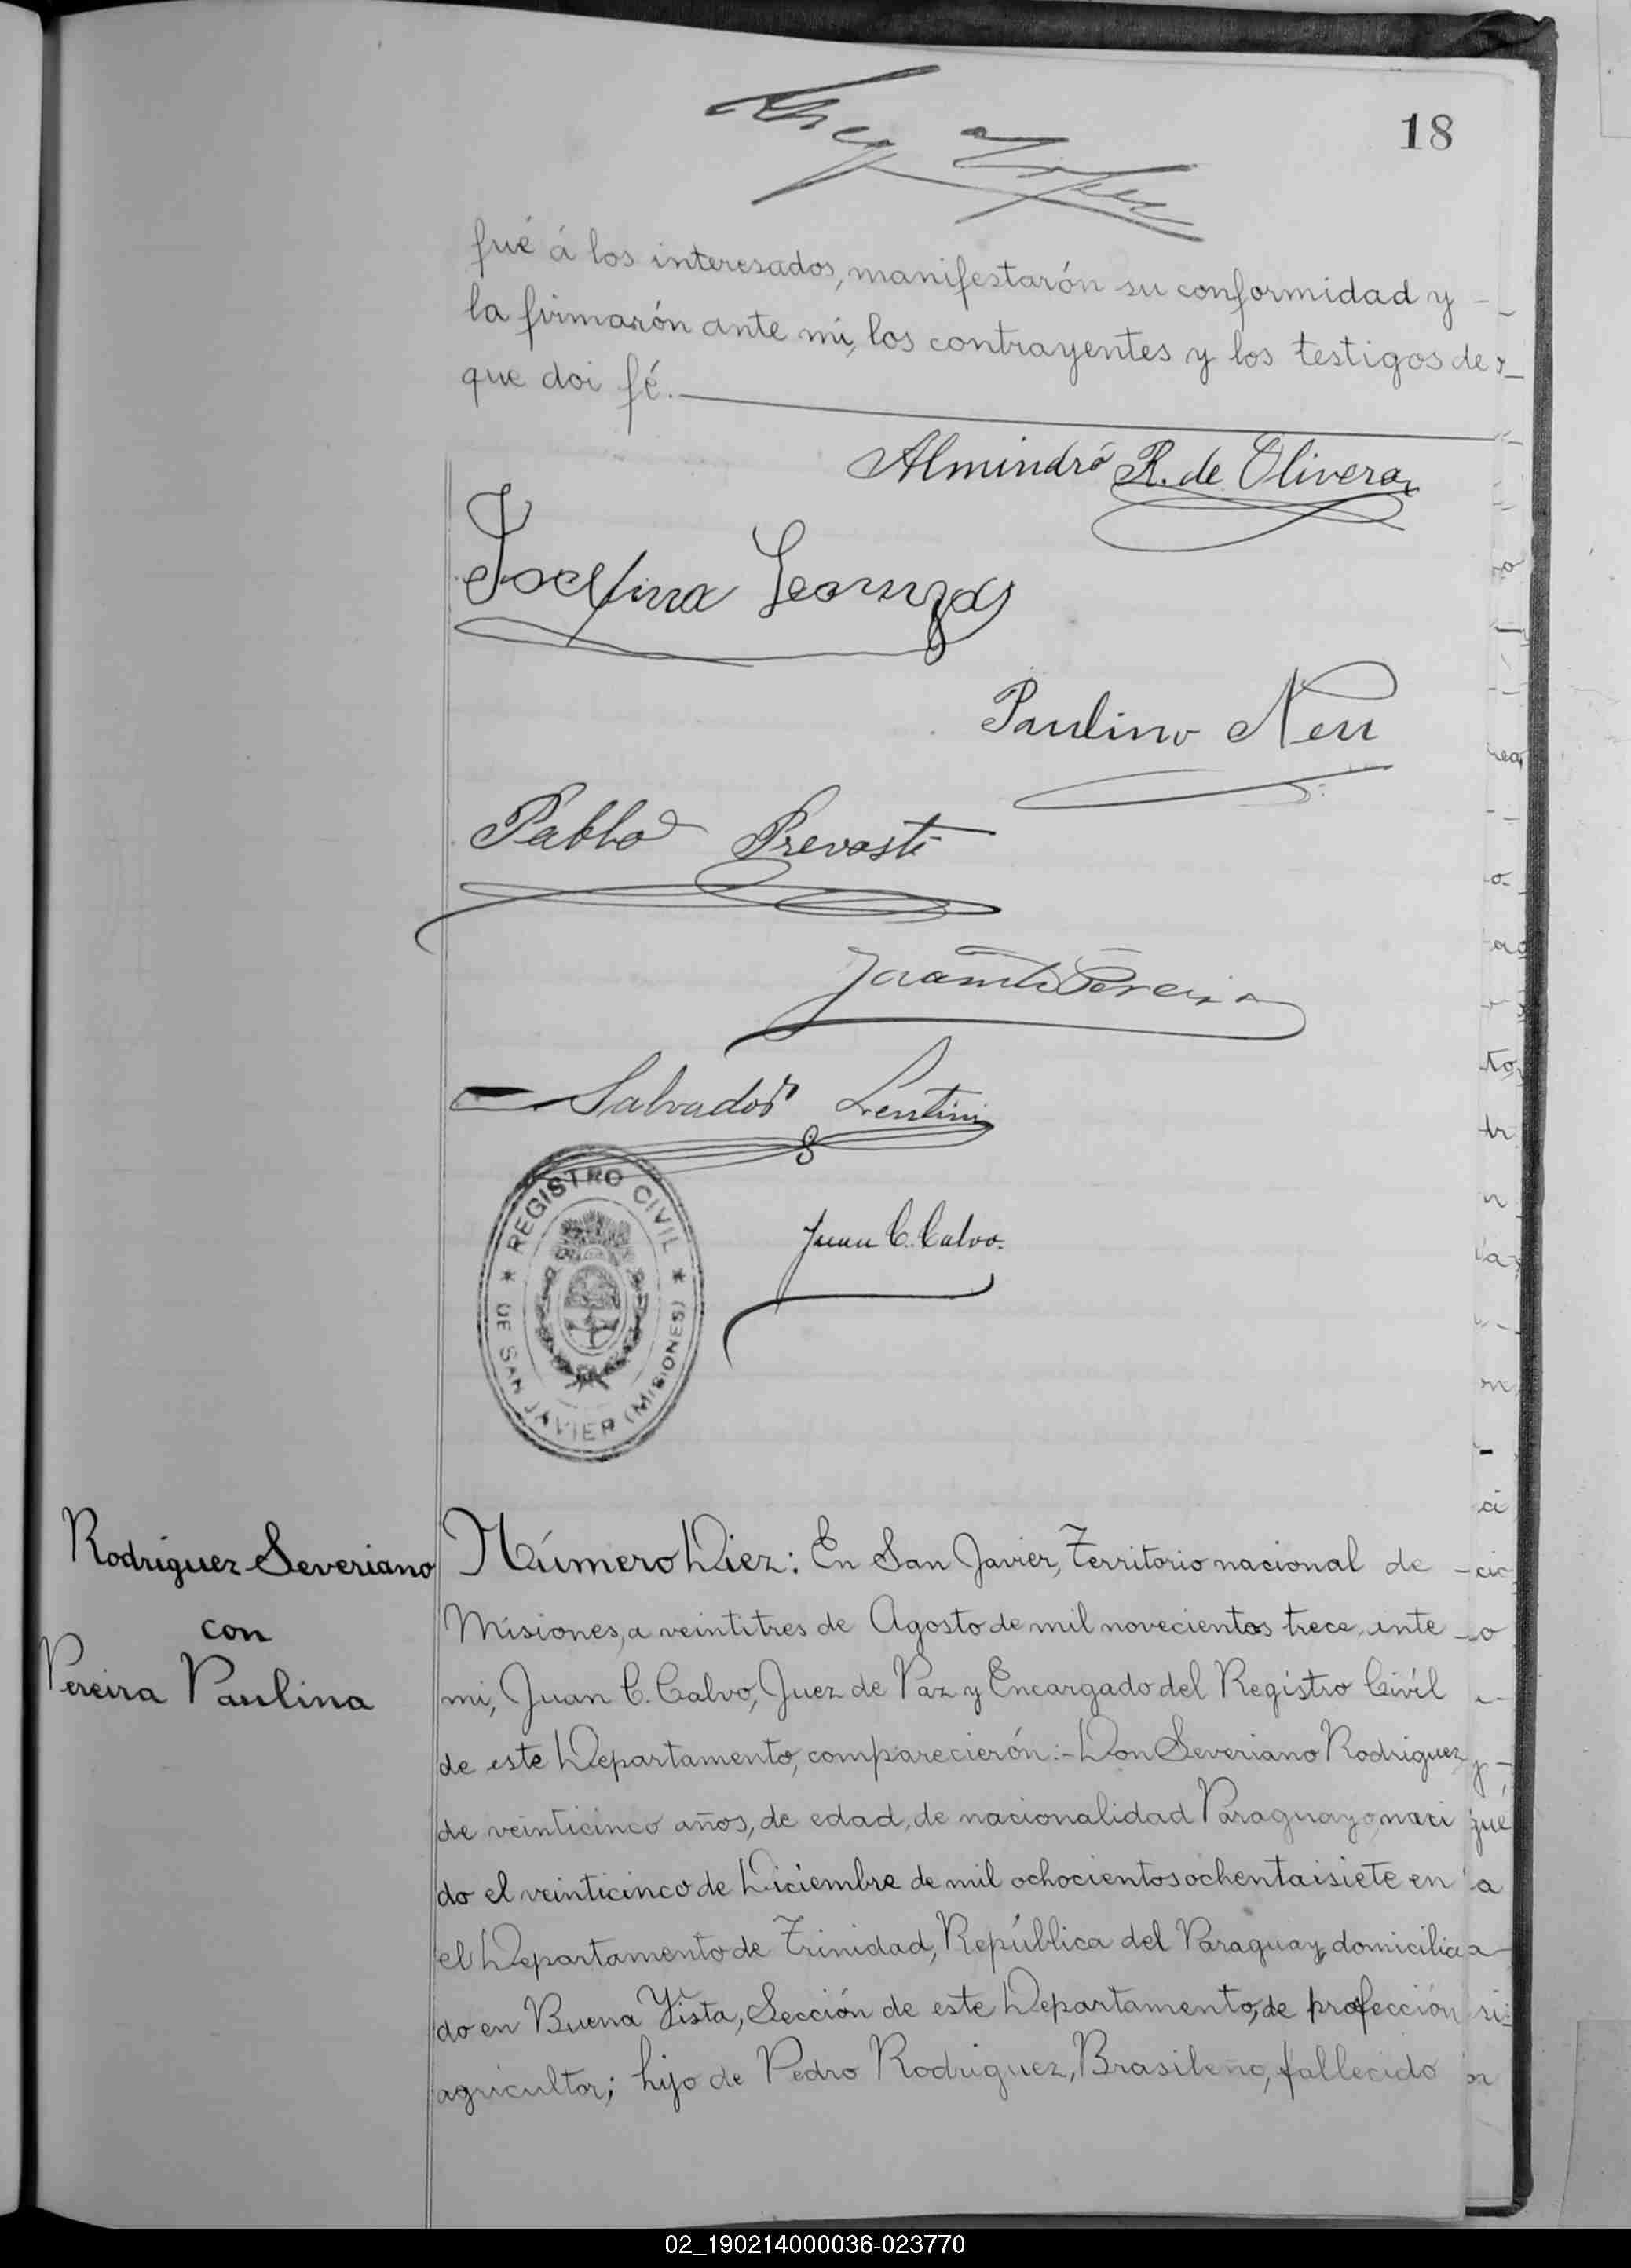 18
fué á los interesados, manifestarón su conformidad y
la firmarón ante mi, los contrayentes y los testigos de
que doi fé.
Almindro R. de Olivera
Paulino Neu
Pablo Prevosti
Pereira
Salvador Lentini
REGISTRO CIVIL
DE SAN JAVIER (MISIONES)
Juan C. Calvo.
Rodriguez Severiano
con
Pereira Paulina
Número Diez: En San Javier, Territorio nacional de
Misiones, a veintitres de Agosto de mil novecientos trece, ante
mi, Juan C. Calvo, Juez de Paz y Encargado del Registro Civil
de este Departamento, comparecierón:- Don Severiano Rodriguez
de veinticinco años, de edad, de nacionalidad Paraguayo, naci
do el veinticinco de Diciembre de mil ochocientos ochentaisiete en
el Departamento de Trinidad, República del Paraguay, domicilia
do en Buena Vista, Sección de este Departamento, de profección
agricultor; hijo de Pedro Rodriguez, Brasileño, fallecido
02_190214000036-023770